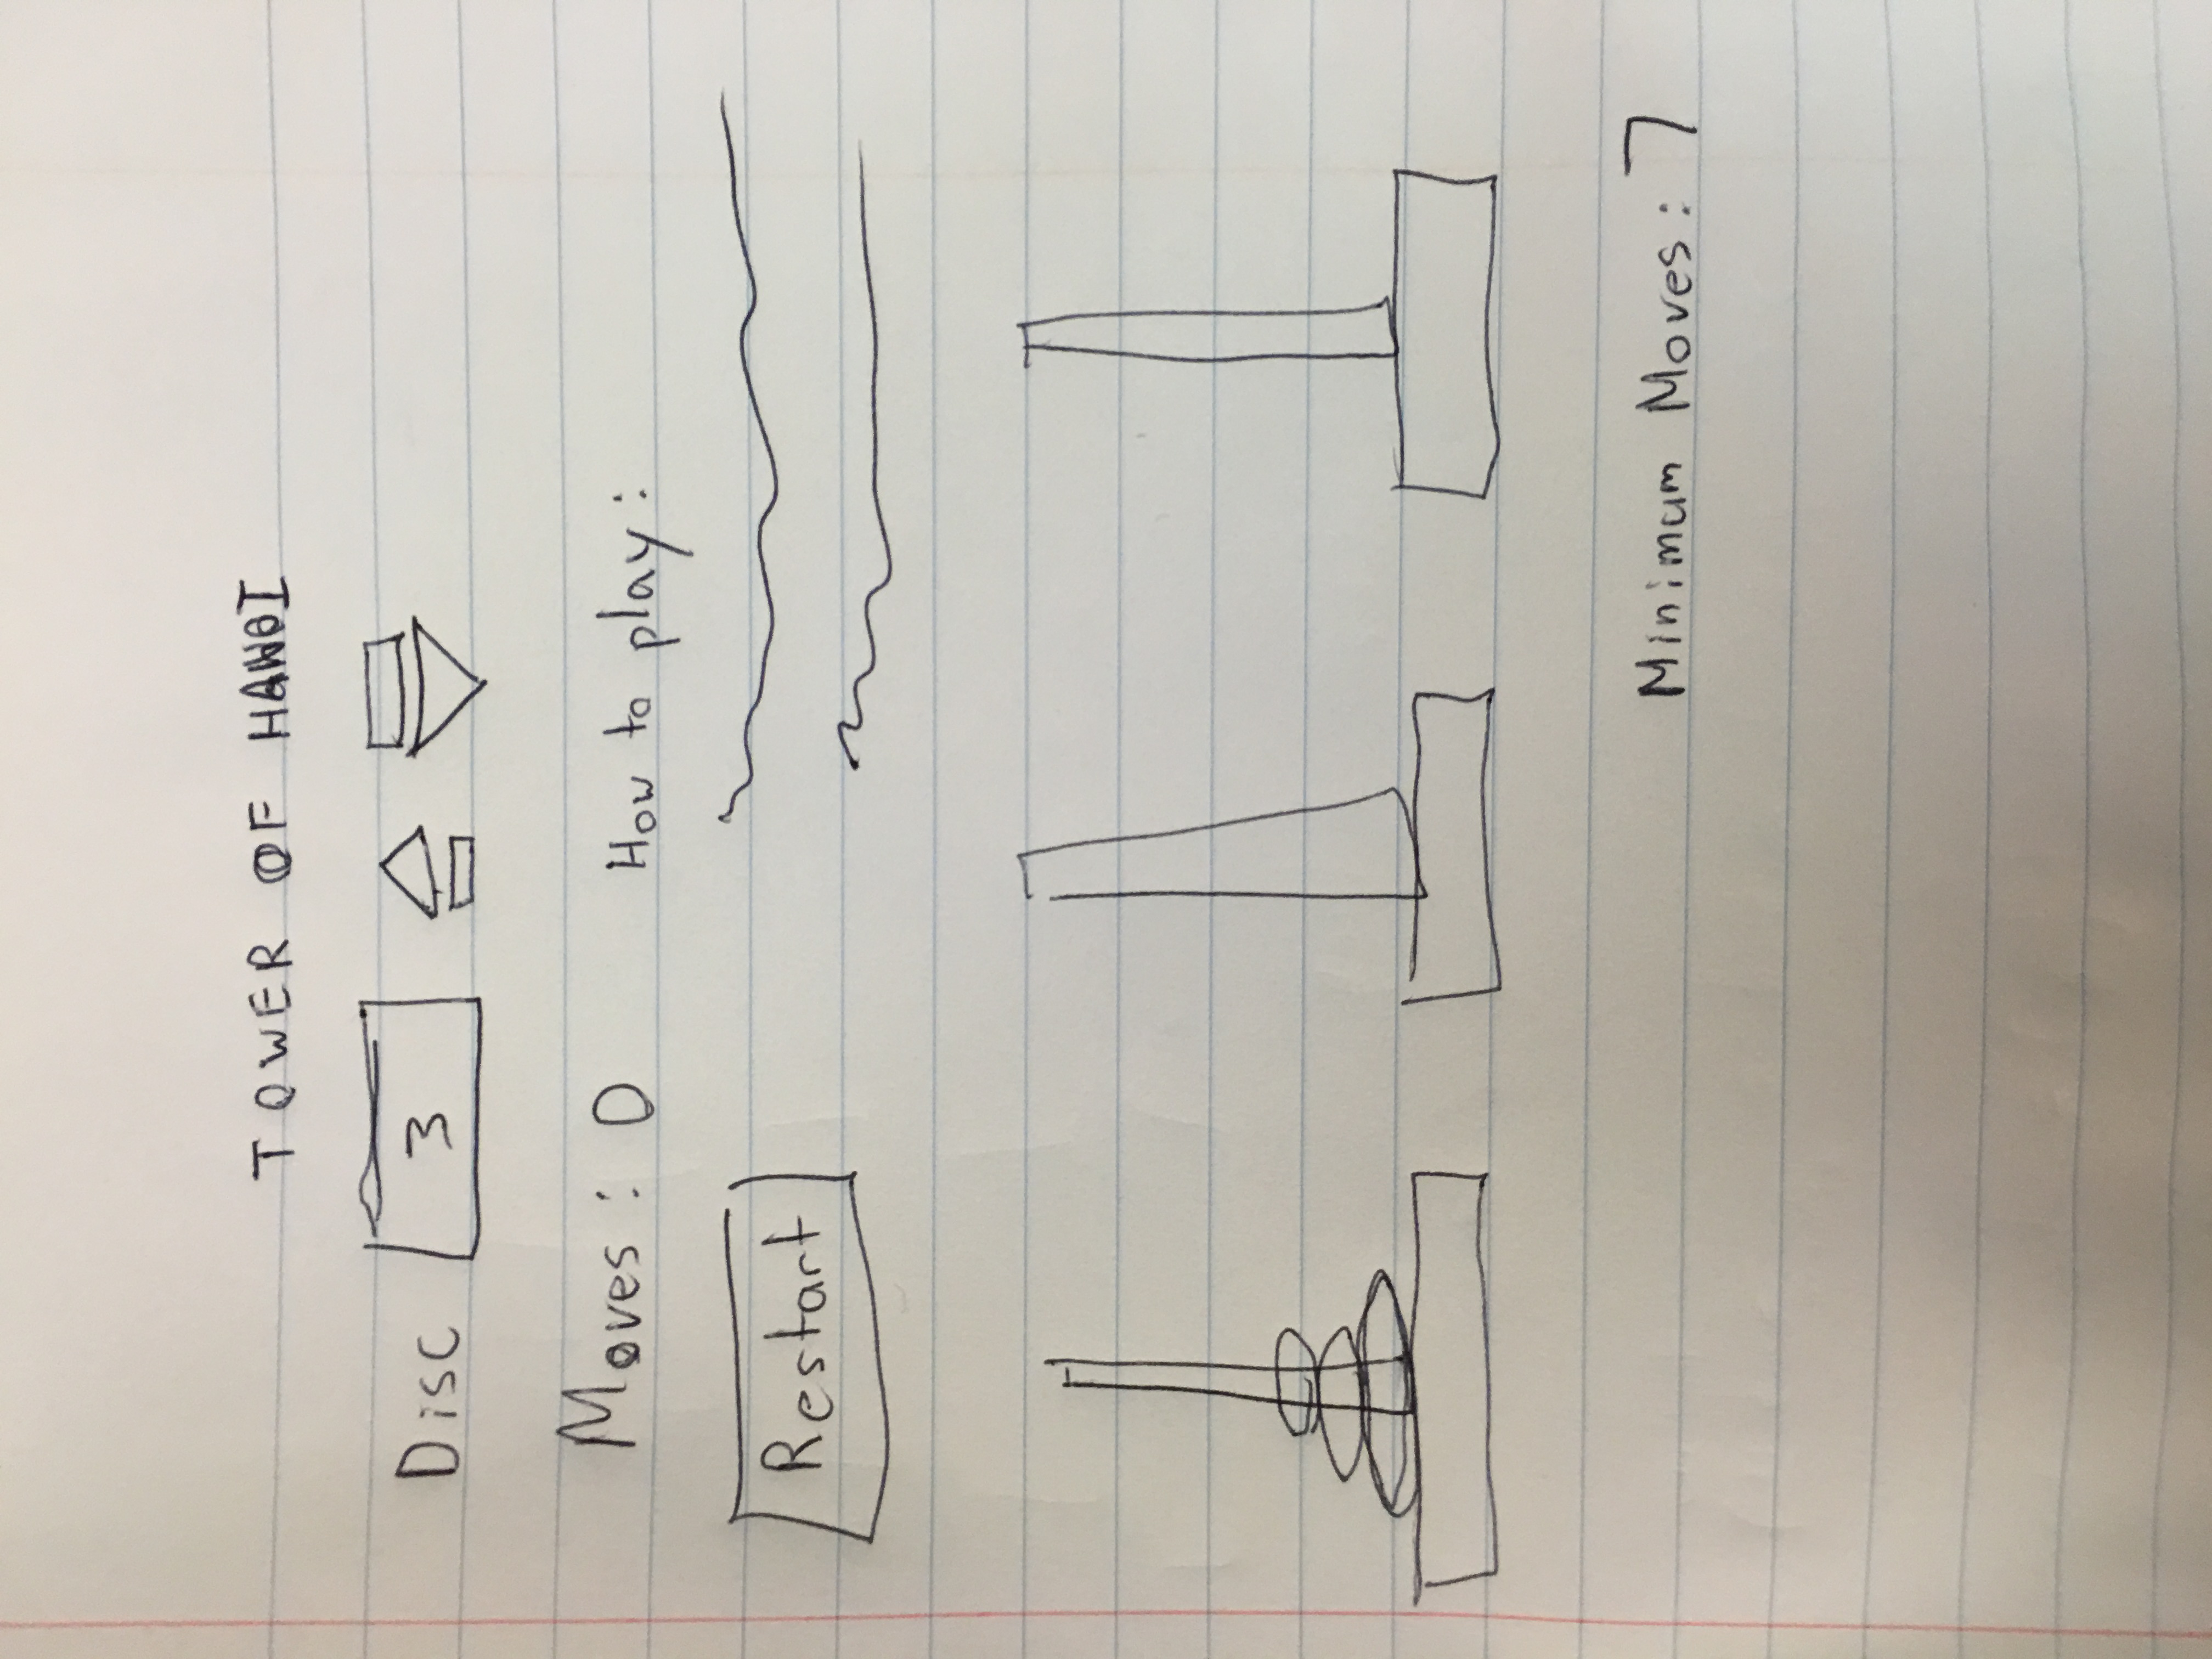 TOWER OF HANOI
Disc 3
Moves: 0 How to play:
Restart
Minimum Moves: 7